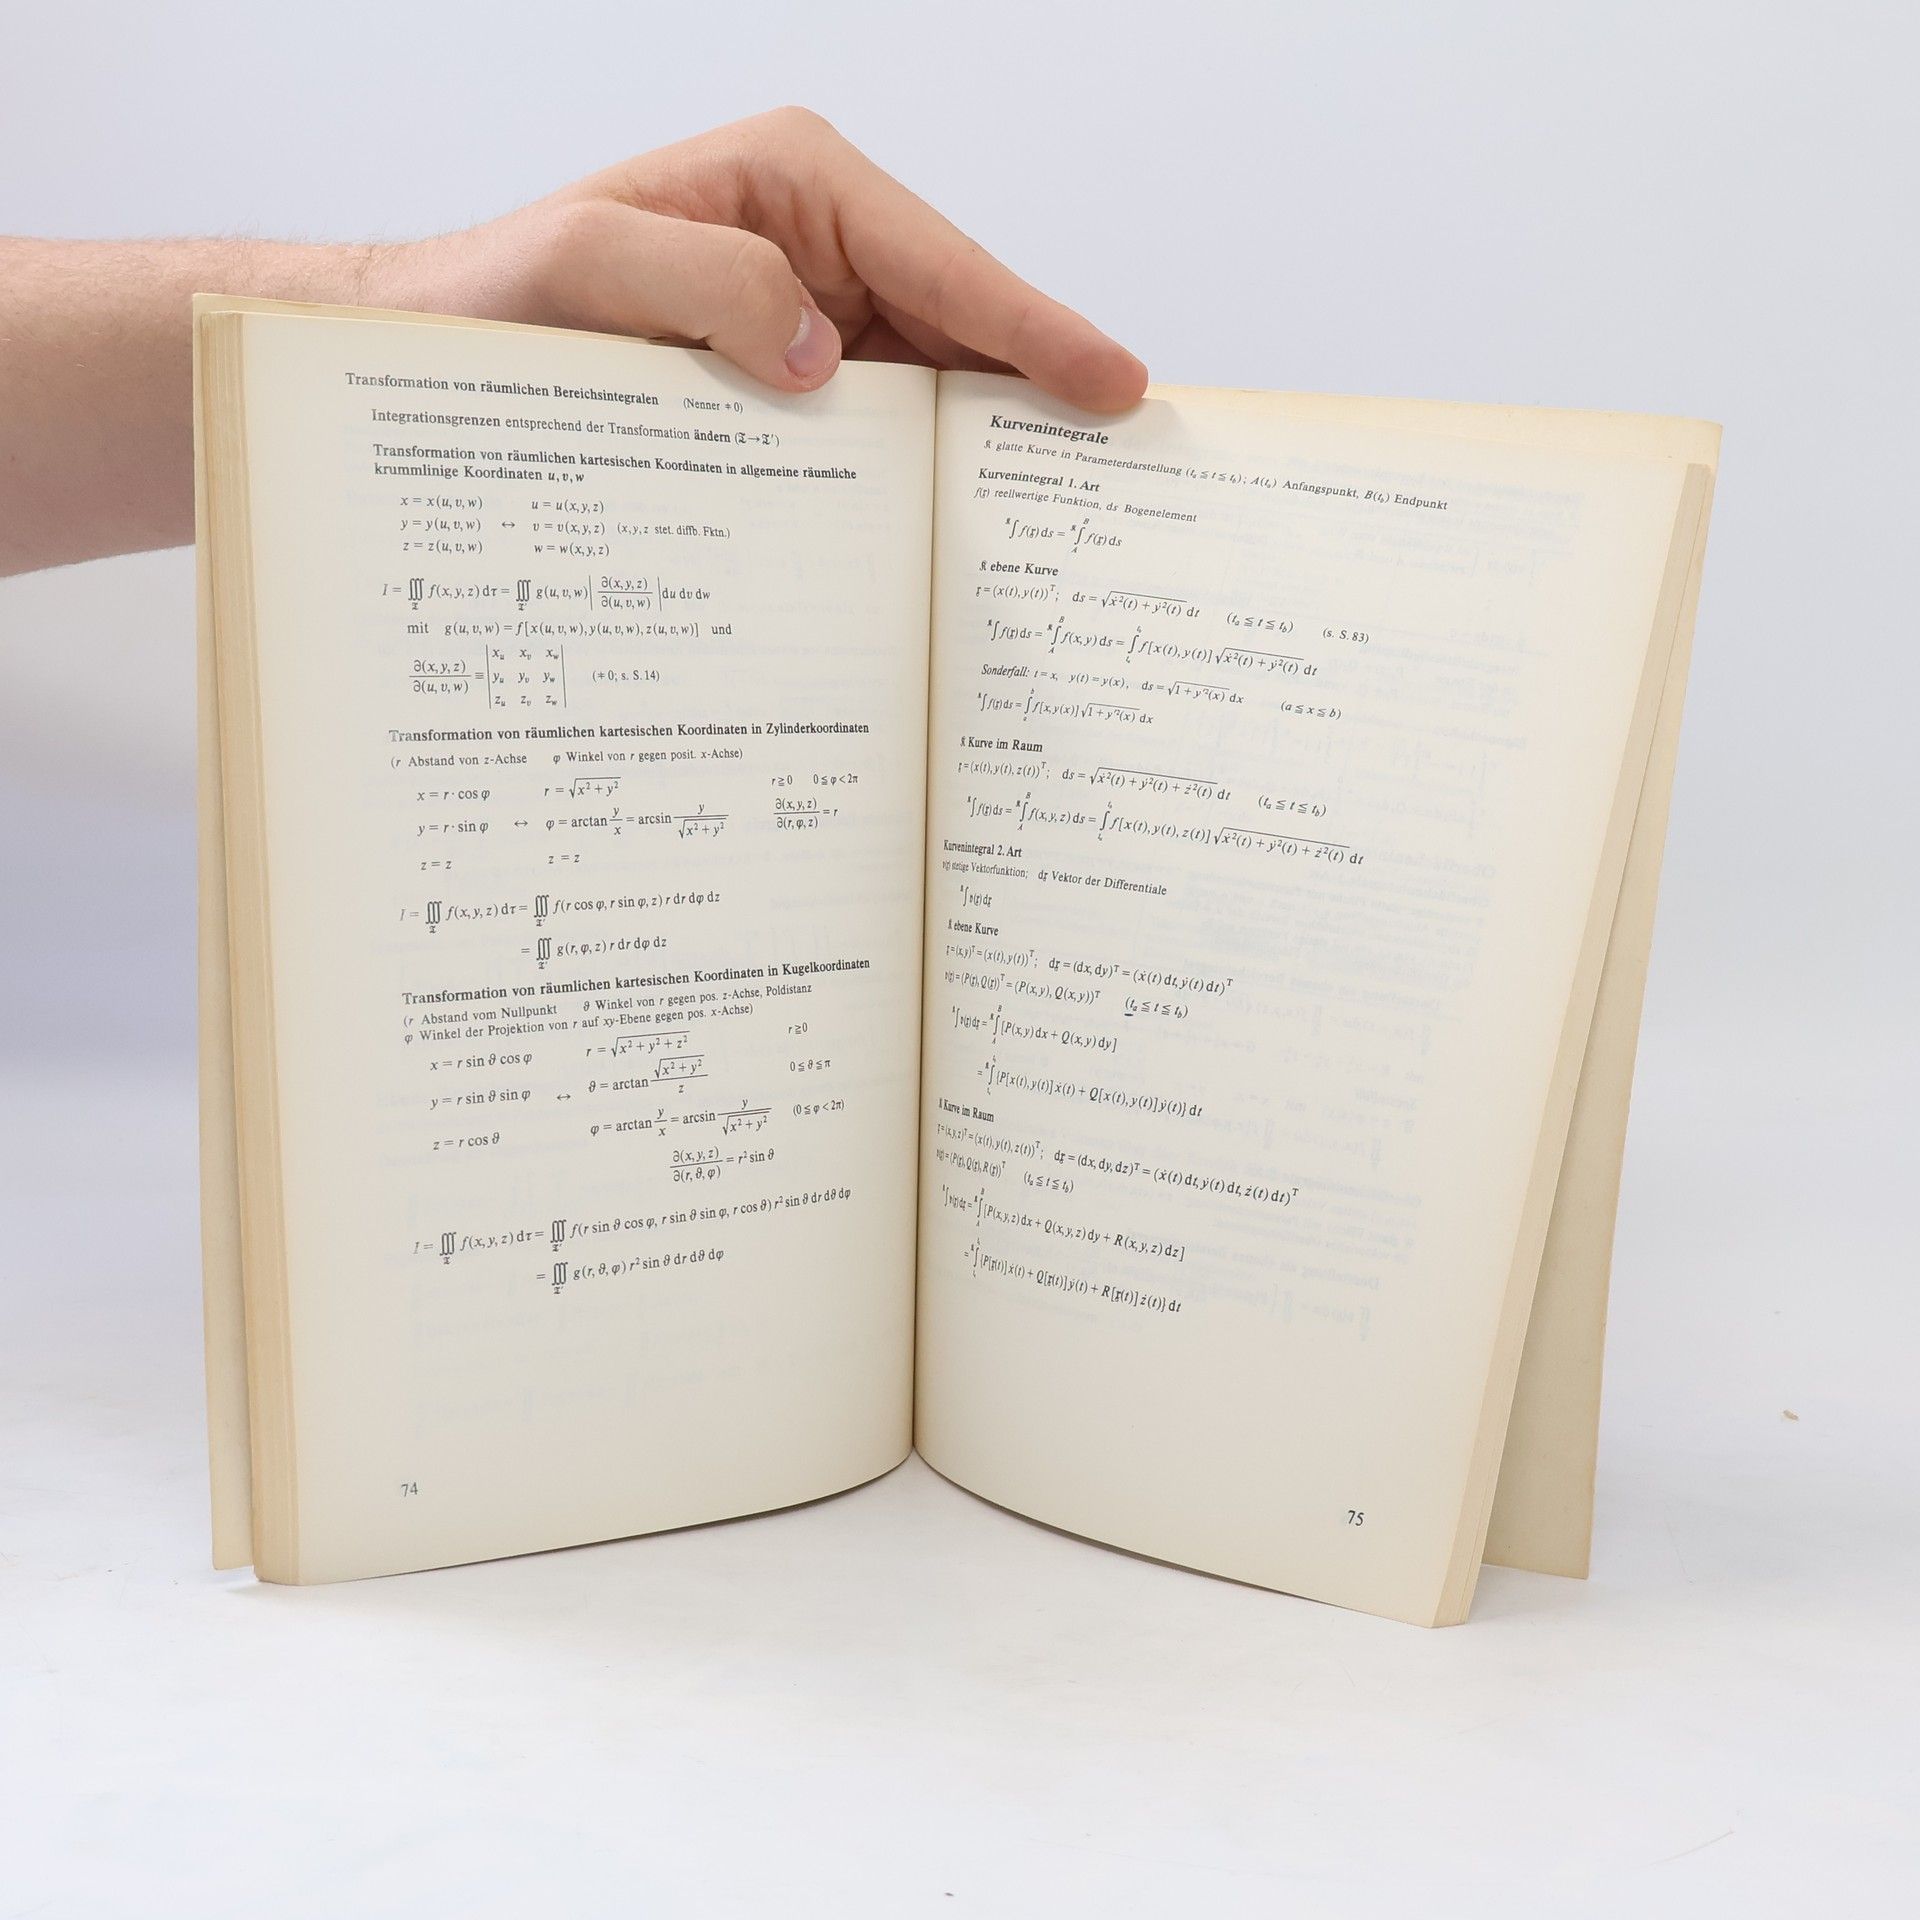 Transformation von räumlichen Bereichsintegralen (Nenner ≠ 0)
Integrationsgrenzen entsprechend der Transformation ändern (𝔗→𝔗′)
Transformation von räumlichen kartesischen Koordinaten in allgemeine räumliche
krummlinige Koordinaten u, v, w
x = x(u, v, w) u = u(x, y, z)
y = y(u, v, w) ↔ v = v(x, y, z) (x, y, z stet. diffb. Fktn.)
z = z(u, v, w) w = w(x, y, z)
I = ∭_𝔗 f(x, y, z) dτ = ∭_𝔗′ g(u, v, w) |∂(x, y, z)/∂(u, v, w)| du dv dw
mit g(u, v, w) = f[x(u, v, w), y(u, v, w), z(u, v, w)] und
∂(x, y, z)/∂(u, v, w) ≡ |x_u x_v x_w
y_u y_v y_w
z_u z_v z_w| (≠ 0; s. S. 14)
Transformation von räumlichen kartesischen Koordinaten in Zylinderkoordinaten
(r Abstand von z-Achse φ Winkel von r gegen posit. x-Achse)
x = r · cos φ r = √(x² + y²) r ≧ 0 0 ≦ φ < 2π
y = r · sin φ ↔ φ = arctan y/x = arcsin y/√(x² + y²) ∂(x, y, z)/∂(r, φ, z) = r
z = z z = z
I = ∭_𝔗 f(x, y, z) dτ = ∭_𝔗′ f(r cos φ, r sin φ, z) r dr dφ dz
= ∭_𝔗′ g(r, φ, z) r dr dφ dz
Transformation von räumlichen kartesischen Koordinaten in Kugelkoordinaten
(r Abstand vom Nullpunkt ϑ Winkel von r gegen pos. z-Achse, Poldistanz
φ Winkel der Projektion von r auf xy-Ebene gegen pos. x-Achse)
x = r sin ϑ cos φ r = √(x² + y² + z²) r ≧ 0
y = r sin ϑ sin φ ↔ ϑ = arctan √(x² + y²)/z 0 ≦ ϑ ≦ π
z = r cos ϑ φ = arctan y/x = arcsin y/√(x² + y²) (0 ≦ φ < 2π)
∂(x, y, z)/∂(r, ϑ, φ) = r² sin ϑ
I = ∭_𝔗 f(x, y, z) dτ = ∭_𝔗′ f(r sin ϑ cos φ, r sin ϑ sin φ, r cos ϑ) r² sin ϑ dr dϑ dφ
= ∭_𝔗′ g(r, ϑ, φ) r² sin ϑ dr dϑ dφ
74
Kurvenintegrale
𝔎 glatte Kurve in Parameterdarstellung (t_a ≦ t ≦ t_b); A(t_a) Anfangspunkt, B(t_b) Endpunkt
Kurvenintegral 1. Art
f(𝔵) reellwertige Funktion, ds Bogenelement
^𝔎∫ f(𝔵) ds = ^𝔎∫_A^B f(𝔵) ds
𝔎 ebene Kurve
𝔵 = (x(t), y(t))^T; ds = √(ẋ²(t) + ẏ²(t)) dt (t_a ≦ t ≦ t_b) (s. S. 83)
^𝔎∫ f(𝔵) ds = ^𝔎∫_A^B f(x, y) ds = ∫_{t_a}^{t_b} f[x(t), y(t)] √(ẋ²(t) + ẏ²(t)) dt
Sonderfall: t = x, y(t) = y(x), ds = √(1 + y′²(x)) dx (a ≦ x ≦ b)
^𝔎∫ f(𝔵) ds = ∫_a^b f[x, y(x)] √(1 + y′²(x)) dx
𝔎 Kurve im Raum
𝔵 = (x(t), y(t), z(t))^T; ds = √(ẋ²(t) + ẏ²(t) + ż²(t)) dt (t_a ≦ t ≦ t_b)
^𝔎∫ f(𝔵) ds = ^𝔎∫_A^B f(x, y, z) ds = ∫_{t_a}^{t_b} f[x(t), y(t), z(t)] √(ẋ²(t) + ẏ²(t) + ż²(t)) dt
Kurvenintegral 2. Art
𝔳(𝔵) stetige Vektorfunktion; d𝔵 Vektor der Differentiale
^𝔎∫ 𝔳(𝔵) d𝔵
𝔎 ebene Kurve
𝔵 = (x, y)^T = (x(t), y(t))^T; d𝔵 = (dx, dy)^T = (ẋ(t) dt, ẏ(t) dt)^T
𝔳(𝔵) = (P(𝔵), Q(𝔵))^T = (P(x, y), Q(x, y))^T (t_a ≦ t ≦ t_b)
^𝔎∫ 𝔳(𝔵) d𝔵 = ^𝔎∫_A^B [P(x, y) dx + Q(x, y) dy]
= ^𝔎∫_{t_a}^{t_b} {P[x(t), y(t)] ẋ(t) + Q[x(t), y(t)] ẏ(t)} dt
𝔎 Kurve im Raum
𝔵 = (x, y, z)^T = (x(t), y(t), z(t))^T; d𝔵 = (dx, dy, dz)^T = (ẋ(t) dt, ẏ(t) dt, ż(t) dt)^T
𝔳(𝔵) = (P(𝔵), Q(𝔵), R(𝔵))^T (t_a ≦ t ≦ t_b)
^𝔎∫ 𝔳(𝔵) d𝔵 = ^𝔎∫_A^B [P(x, y, z) dx + Q(x, y, z) dy + R(x, y, z) dz]
= ^𝔎∫_{t_a}^{t_b} {P[𝔵(t)] ẋ(t) + Q[𝔵(t)] ẏ(t) + R[𝔵(t)] ż(t)} dt
75